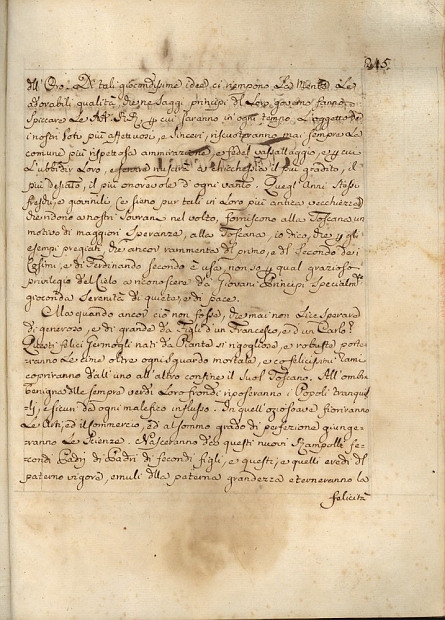 245
dell'Oro. Di tali giocondissime idee ci riempono la Mente le
adorabili qualità, che ne Saggi principj del Loro governo fanno
spiccare le AA. RR. per cui saranno in ogni tempo l'oggetto de
nostri Voti più affettuosi, e sinceri, riscuoteranno mai sempre la
comune più rispettosa ammirazione, e fedel vassallaggio, e per cui
l'ubbidir Loro, e servire riuscirà a chicchesia il più gradito, il
più desiato, il più onorevole di ogni vanto. Quegl'Anni stessi
freschi, e giovanili (e sieno pur tali in Loro più antica vecchiezza)
che ridono a nostri Sovrani nel volto, forniscono alla Toscana un
motivo di maggiori speranze, alla Toscana, io dico, che per gli
esempi pregiati che ancor rammenta del primo, e del Secondo dei
Cosimi, e di Ferdinando Secondo è usa, non so per qual grazioso
privilegio del Cielo a riconoscere da Giovani Principi specialm.
gioconda Serenità di quiete, e di pace.
Ella quando ancor ciò non fosse, che mai non Lice sperare
di generoso, e di grande da Figli d'un Francesco, e d'un Carlo?
Questi felici Germogli nati da Piante sì rigogliose, e robuste porte-
ranno le cime oltre ogni sguardo mortale, e co felicissimi Rami
copriranno dall'uno all'altro confine il Suol Toscano. All'ombra
benigna delle sempre verdi Loro frondi riposeranno i Popoli tranquil-
li, e sicuri da ogni malefico influsso. In quell'ozio soave fioriranno
le Arti, ed il commercio, ed al sommo grado di perfezione giunge-
ranno le Scienze. Nasceranno da questi nuovi Rampolli fe-
condi Padri di Padri di fecondi figli, e questi, e quelli eredi del
paterno vigore, emuli della paterna grandezza eterneranno la
felicità